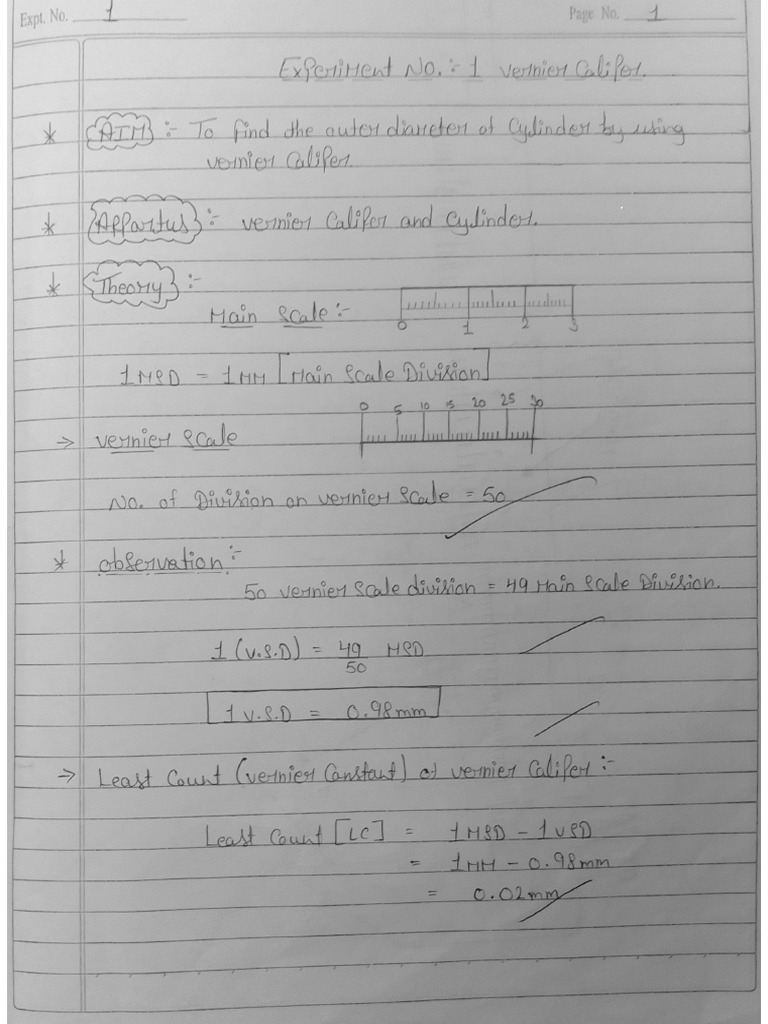 Expt. No. 1
Page No. 1
Experiment No. :- 1 vernier Califer.
* AIM :- To find the outer diameter of Cylinder by using
vernier Califer.
* Appartus :- vernier Califer and Cylinder.
* Theory :-
Main Scale :-
0 1 2 3
1 MSD = 1 MM [Main Scale Division]
0 5 10 15 20 25 30
→ vernier Scale
No. of Division on vernier Scale = 50
* observation :-
50 vernier Scale division = 49 Main Scale Division.
1 (V.S.D) = 49/50 MSD
1 V.S.D = 0.98mm
→ Least Count (vernier Constant) of vernier Califer :-
Least Count [LC] = 1 MSD - 1 VSD
= 1 MM - 0.98mm
= 0.02mm